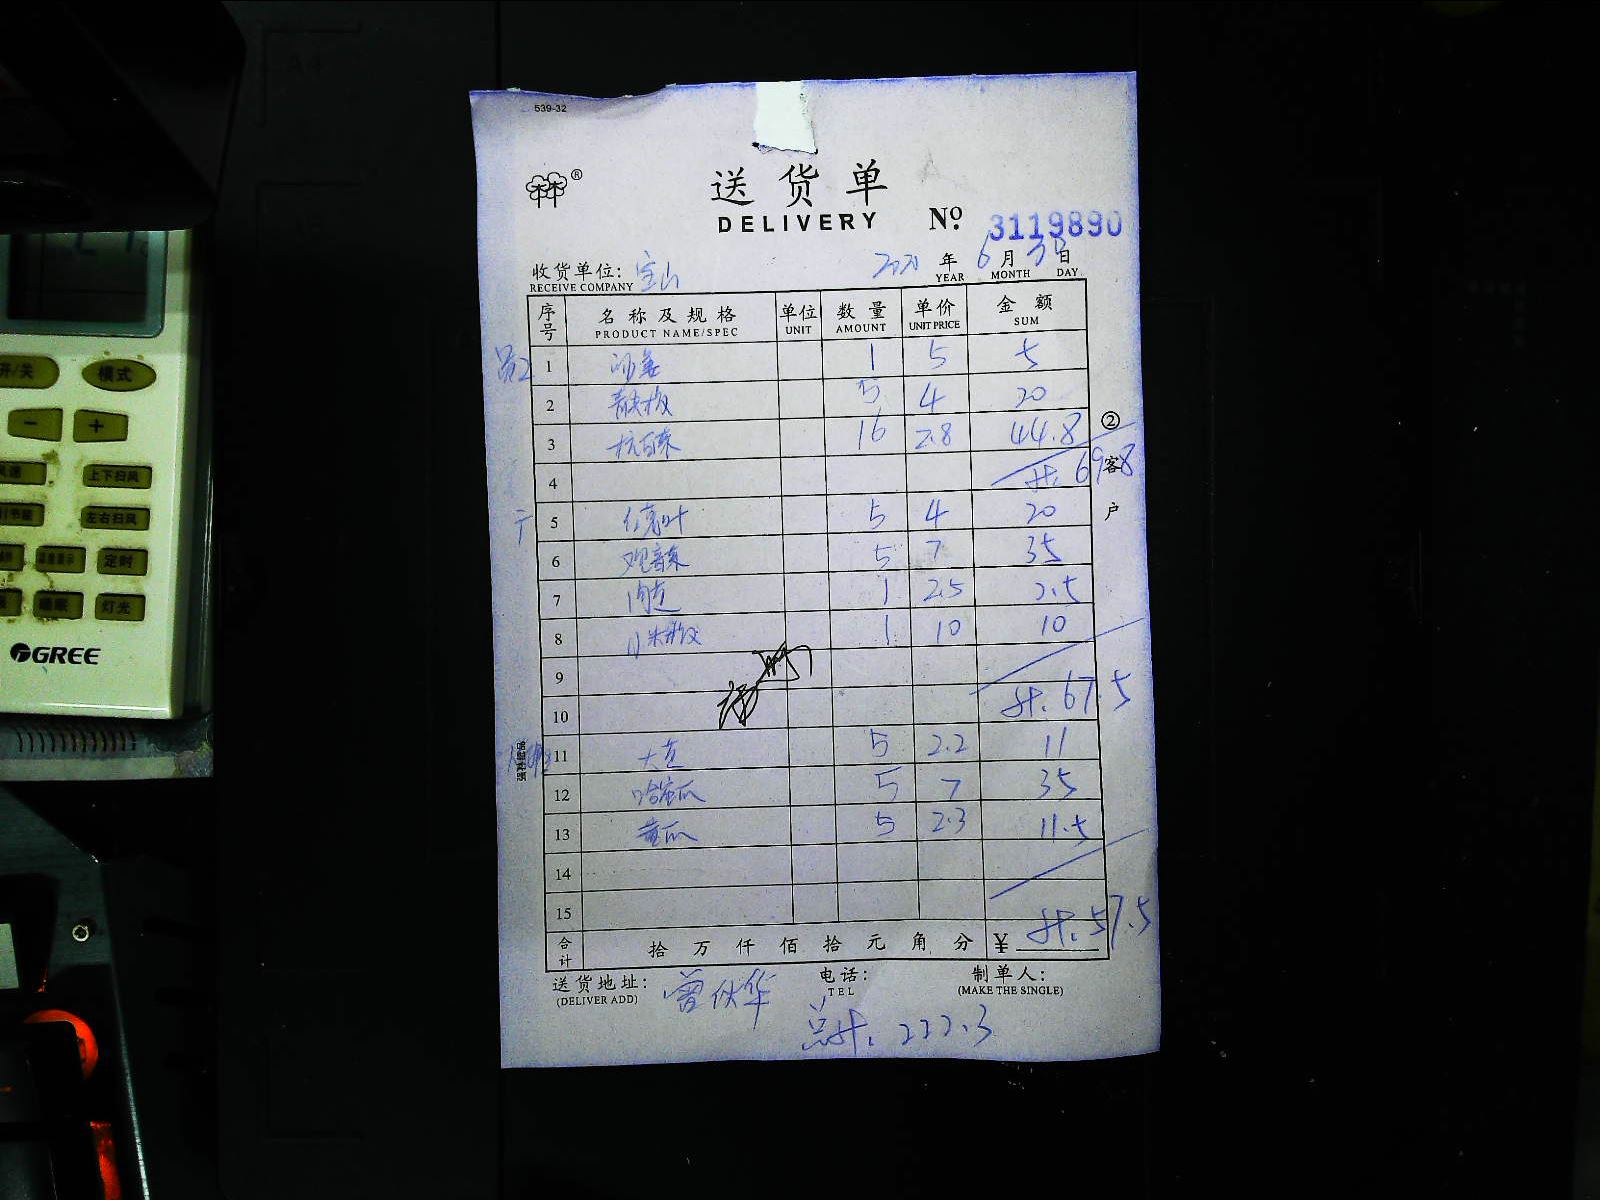 539-32
送货单
DELIVERY
No. 3119890
收货单位: 宝山
RECEIVE COMPANY
年 6 月 3 日
YEAR MONTH DAY
序号 名称及规格 单位 数量 单价 金额
PRODUCT NAME/SPEC UNIT AMOUNT UNIT PRICE SUM
1 沙姜 1 5 5
2 5 4 20
3 16 2.8 44.8
4 计. 69.8
5 5 4 20
6 5 7 35
7 1 2.5 2.5
8 1 10 10
9
10 计. 67.5
11 5 2.2 11
12 哈密瓜 5 7 35
13 黄瓜 5 2.3 11.5
14
15
合计 拾 万 仟 佰 拾 元 角 分 ¥ 计. 57.5
② 客户
送货地址: 曾伙华 电话: 制单人:
(DELIVER ADD) TEL (MAKE THE SINGLE)
总计. 222.3
开/关 模式
− +
风速 上下扫风
左右扫风
定时
睡眠 灯光
GREE